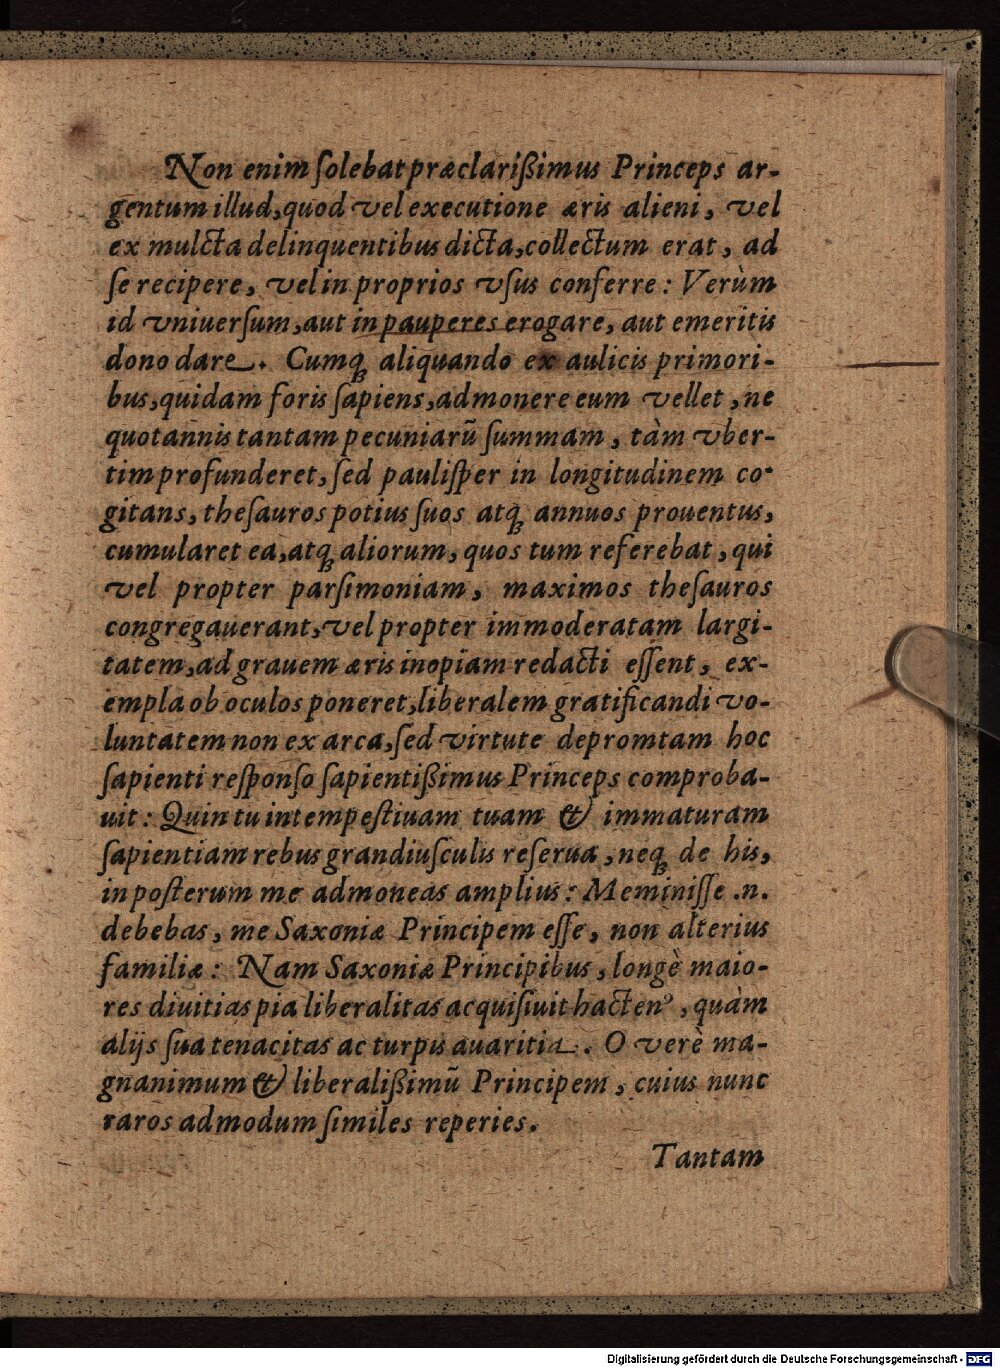 Non enim ſolebat præclariſſimus Princeps ar-
gentum illud, quod vel executione æris alieni, vel
ex mulcta delinquentibus dicta, collectum erat, ad
ſe recipere, vel in proprios vſus conferre: Verùm
id vniuerſum, aut in pauperes erogare, aut emeritis
dono dare. Cumq́; aliquando ex aulicis primori-
bus, quidam foris ſapiens, admonere eum vellet, ne
quotannis tantam pecuniarū ſummam, tàm vber-
tim profunderet, ſed pauliſper in longitudinem co-
gitans, theſauros potius ſuos atq; annuos prouentus,
cumularet ea, atq; aliorum, quos tum referebat, qui
vel propter parſimoniam, maximos theſauros
congregauerant, vel propter immoderatam largi-
tatem, ad grauem æris inopiam redacti eſſent, ex-
empla ob oculos poneret, liberalem gratificandi vo-
luntatem non ex arca, ſed virtute depromtam hoc
ſapienti reſponſo ſapientiſſimus Princeps comproba-
uit: Quin tu intempeſtiuam tuam & immaturam
ſapientiam rebus grandiuſculis reſerua, neq; de his,
in poſterum me admoneas amplius: Meminiſſe .n.
debebas, me Saxoniæ Principem eſſe, non alterius
familiæ: Nam Saxoniæ Principibus, longè maio-
res diuitias pia liberalitas acquiſiuit hacten⁹, quàm
alijs ſua tenacitas ac turpis auaritia. O verè ma-
gnanimum & liberaliſſimū Principem, cuius nunc
raros admodum ſimiles reperies.
Tantam
Digitalisierung gefördert durch die Deutsche Forschungsgemeinschaft - DFG